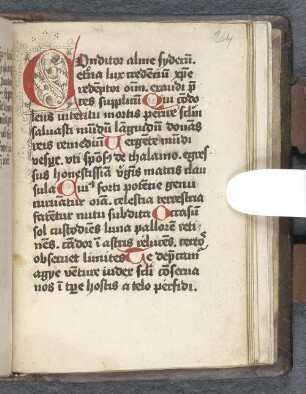 Conditor alme syderū.
eterna lux credenciū xp̄e
redemptor oīm. exaudi p̄
ces supplicū Qui cōdo
lens interitu mortis perire sclm̄
saluasti mūdū lāgwidū donās
reis remediū Uergente mūdi
vespe. vti spōsꝰ de thalamo. egres
sus honestissīa v̄gīs matris clau
sula Cuiꝰ forti potēcie genu
curuātur oīa. celestia terrestria
fatētur nutu subdita Occasū
sol custodiens luna pallorē reti
nēs. cādor ī astris relucēs. certos
obseruet limites Te dep̄cam̄
agye vēture iudex scli cōserua
nos ī tp̄re hostis a telo perfidi.